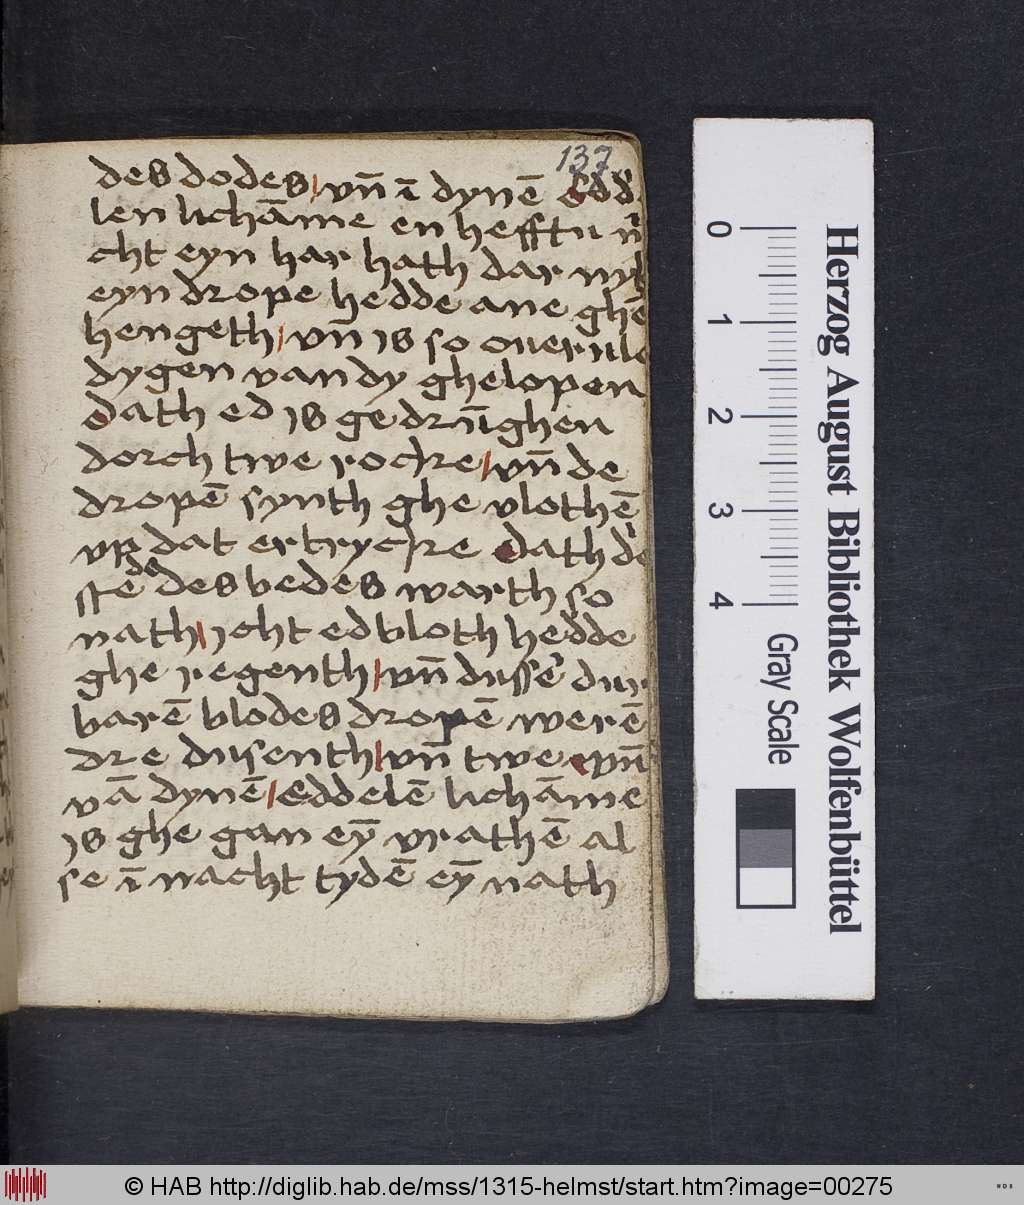 137
des dodes / vn̄ ī dynē Edd
len lichāme en hefftu n
cht eyn har hath dar nyk
eyn drope hedde ane ghē
hengeth / vn̄ is so ouerulo
dygen van dy ghelopen
dath ed is gedrūghen
dorch twe rocke / vn̄ de
dropē synth ghe vlothē
vp dat ertrycke dath de
stē de des bedes warth so
nath / icht ed bloth hedde
ghe regenth / vn̄ dusse dur
barē blodes dropē werē
dre dusenth / vn̄ twe vn̄
vā dynē / Eddelē lichāme
is ghe gan ey̅ vrathē al
se ī nacht tydē ey̅ nath
0 1 2 3 4
Gray Scale
Herzog August Bibliothek Wolfenbüttel
© HAB http://diglib.hab.de/mss/1315-helmst/start.htm?image=00275